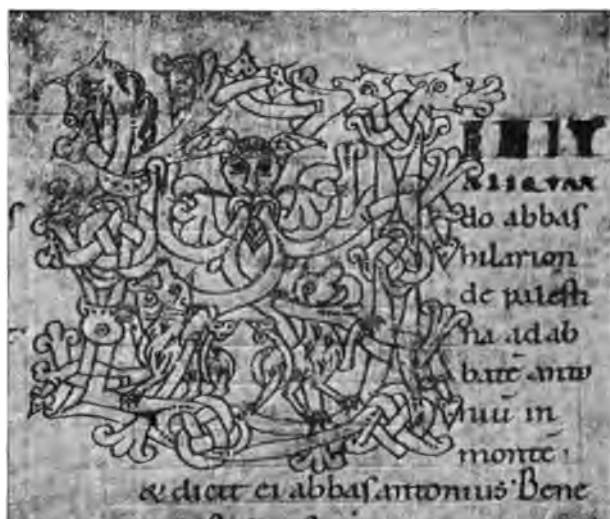 ENIT
ALIQVAN
do abbaſ
hilarion
de paleſti
na ad ab
batē anto
niū in
montē·
& dicit ei abbaſ antonius· Bene